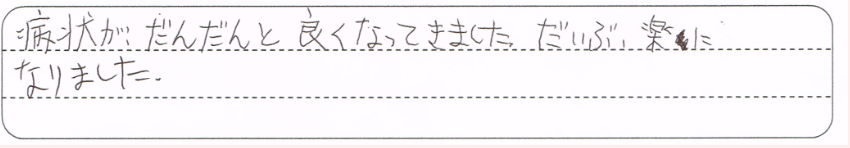 病状が、だんだんと良くなってきました。だいぶ、楽に
なりました。